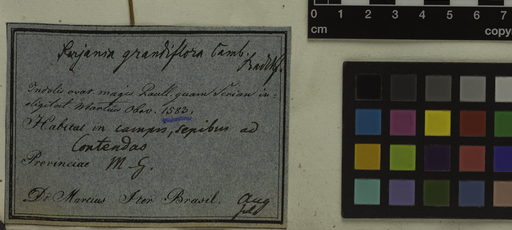 Serjania grandiflora Camb.
Radlk.
Indolis ovar. magis Paull. quam Serian. in-
digitat Martius Obs. 1582.
Habitat in campis, sepibus ad
Contendas
Provinciae M-G.
Dr Martius Iter Brasil. Aug
0 1 2 3 4 5 6 7
cm copy